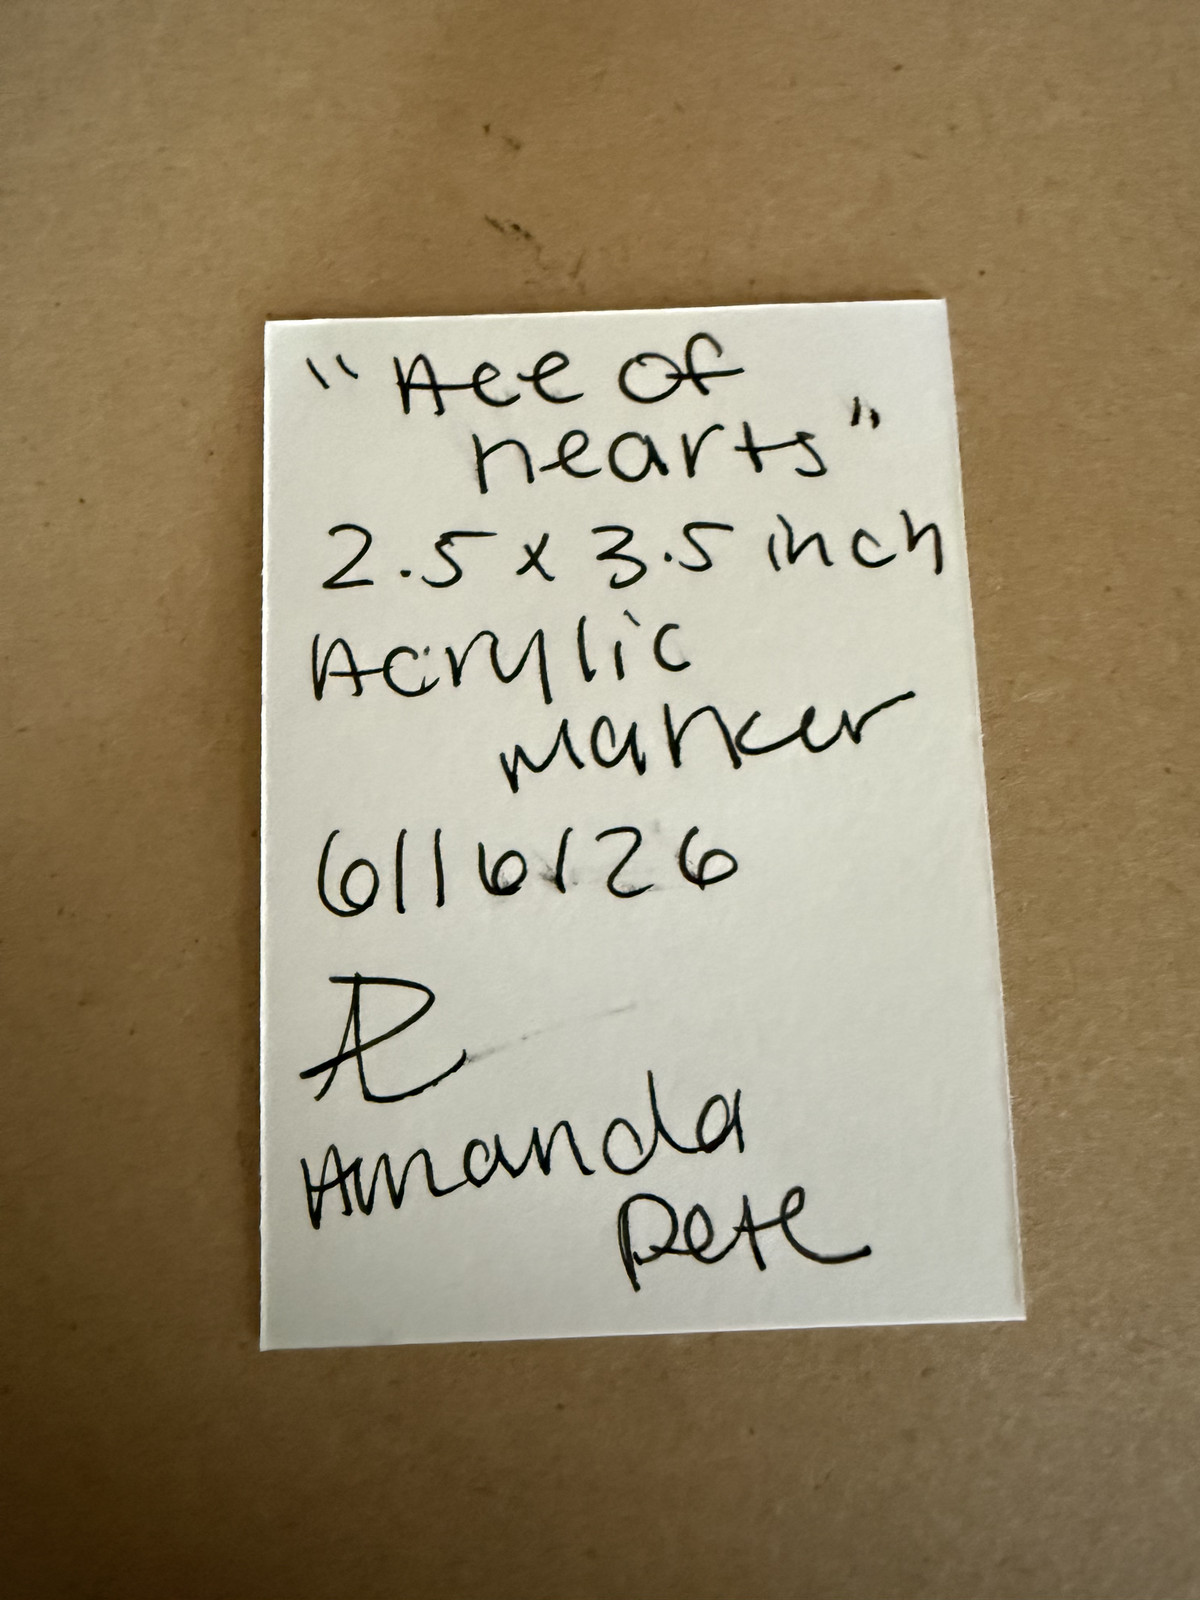 "Ace of
hearts"
2.5 x 3.5 inch
Acrylic
marker
6/16/26
AP
Amanda
Pete